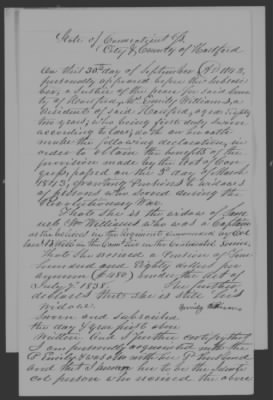 State of Connecticut SS.
City & County of Hartford
On this 30th day of September AD 1843,
personally appeared before the subscri-
ber, a Justice of the peace for said Coun-
ty of Hartford, Mrs Emily Williams, a
resident of said Hartford, aged Eighty
two years, who being first duly sworn
according to law, doth on her oath
make the following declaration, in
order to obtain the benefit of the
provision made by the Act of Con-
gress, passed on the 3d day of March
1843, granting Pensions to widows
of persons who served during the
Revolutionary War.
That she is the widow of Sam-
uel W. Williams who was a Captain
in the Regiment commanded by Col
in the Continental Service.
That she received a Pension of Four
hundred and Eighty dollars per
annum ($480) under the Act of
July 7th 1838. She further
declares that she is still his
widow.
Emily Williams
Sworn and subscribed
the day & year first above
written And I further certify that
I am personally acquainted with the
Emily & was also with her husband
and that I know her to be the identi-
cal person who received the above